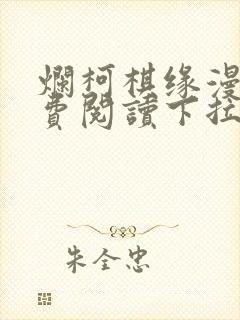 爛柯棋缘漫
費閱讀下拉
朱全忠